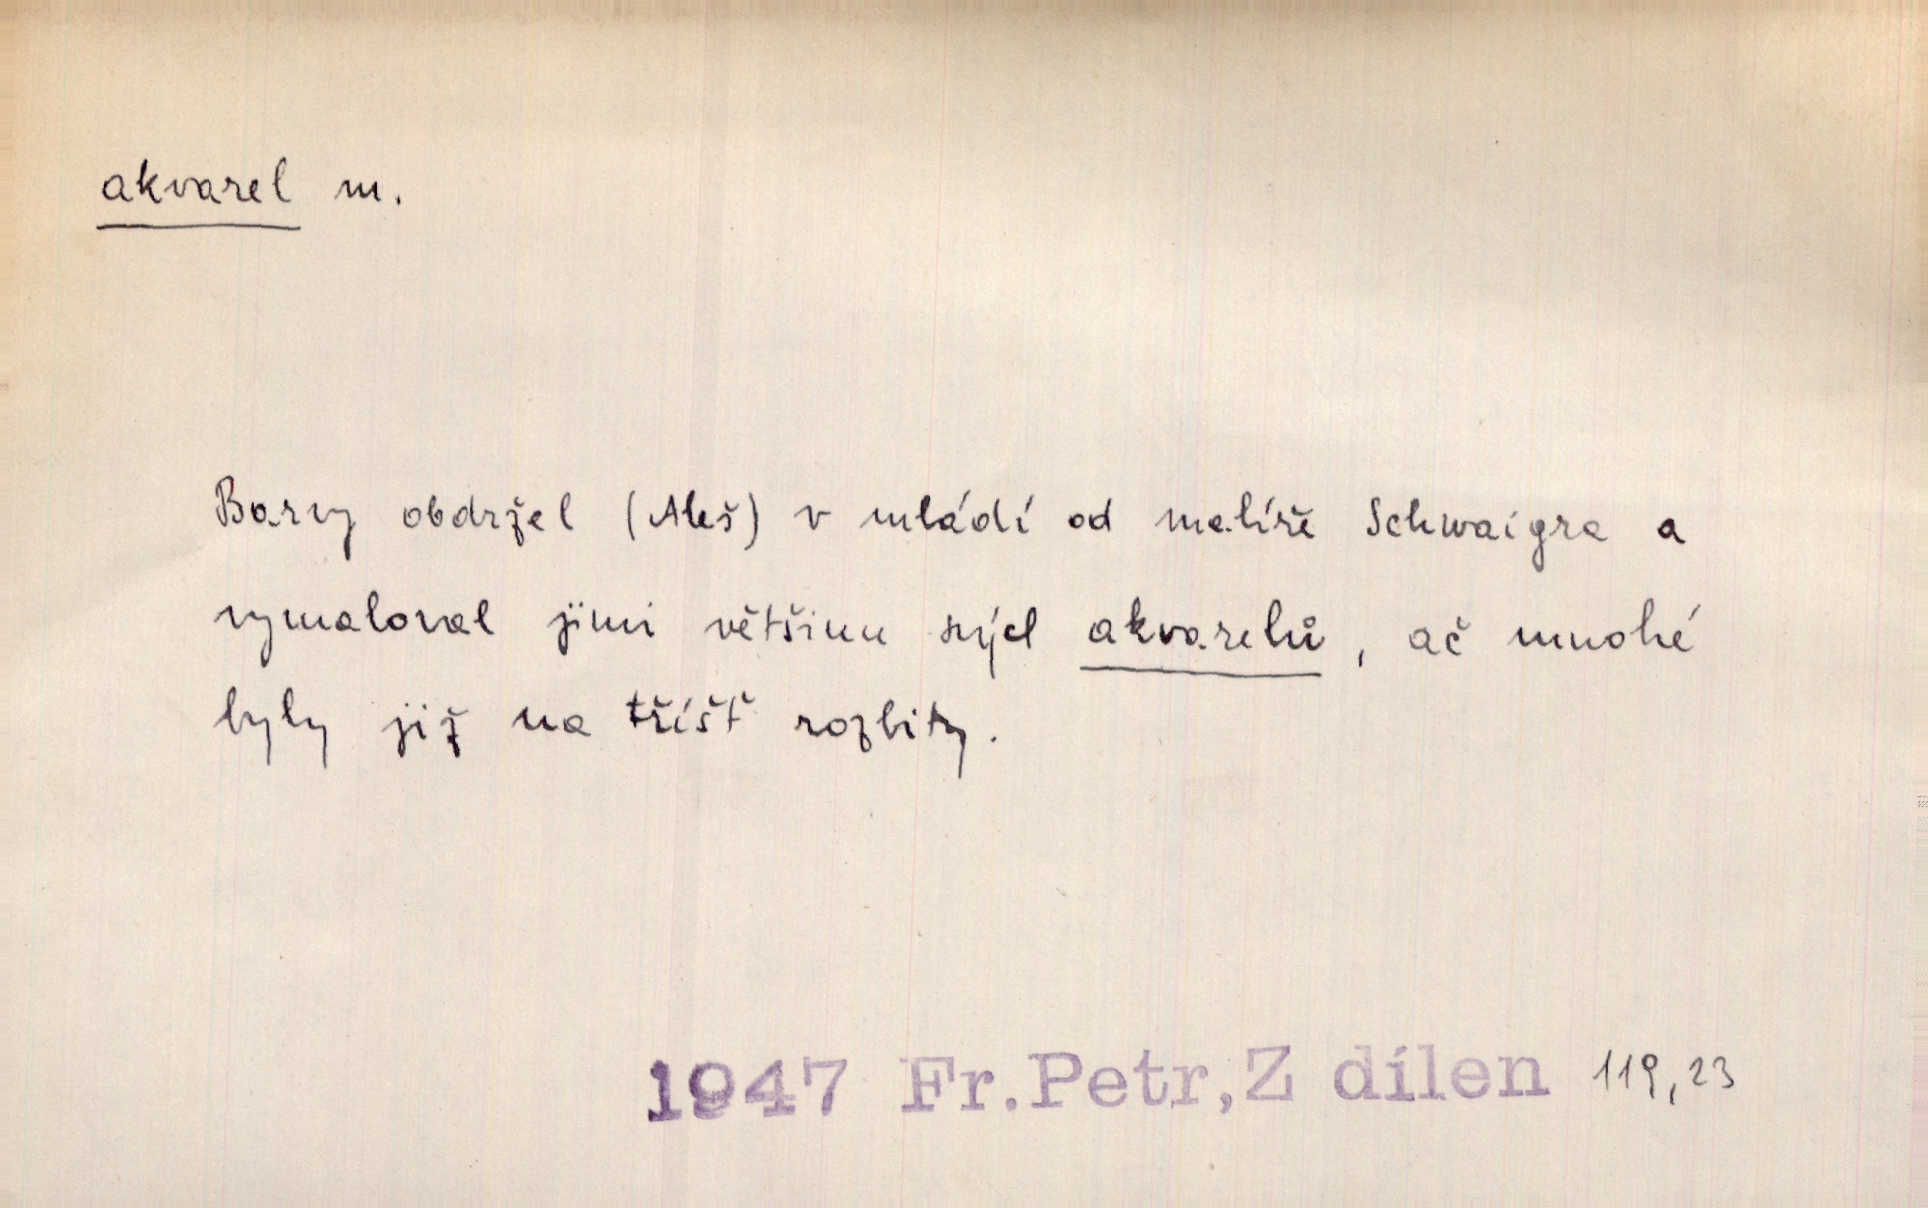 akvarel m.
Barvy obdržel (Aleš) v mládí od malíře Schwaigra a
vymaloval jimi většinu svých akvarelů, ač mnohé
byly již na tříšť rozbity.
1947 Fr.Petr,Z dílen 119,23